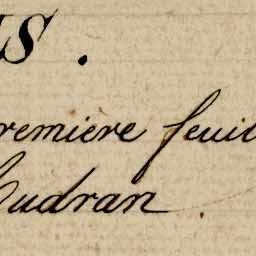 LS.
remière feuil
Cudran.